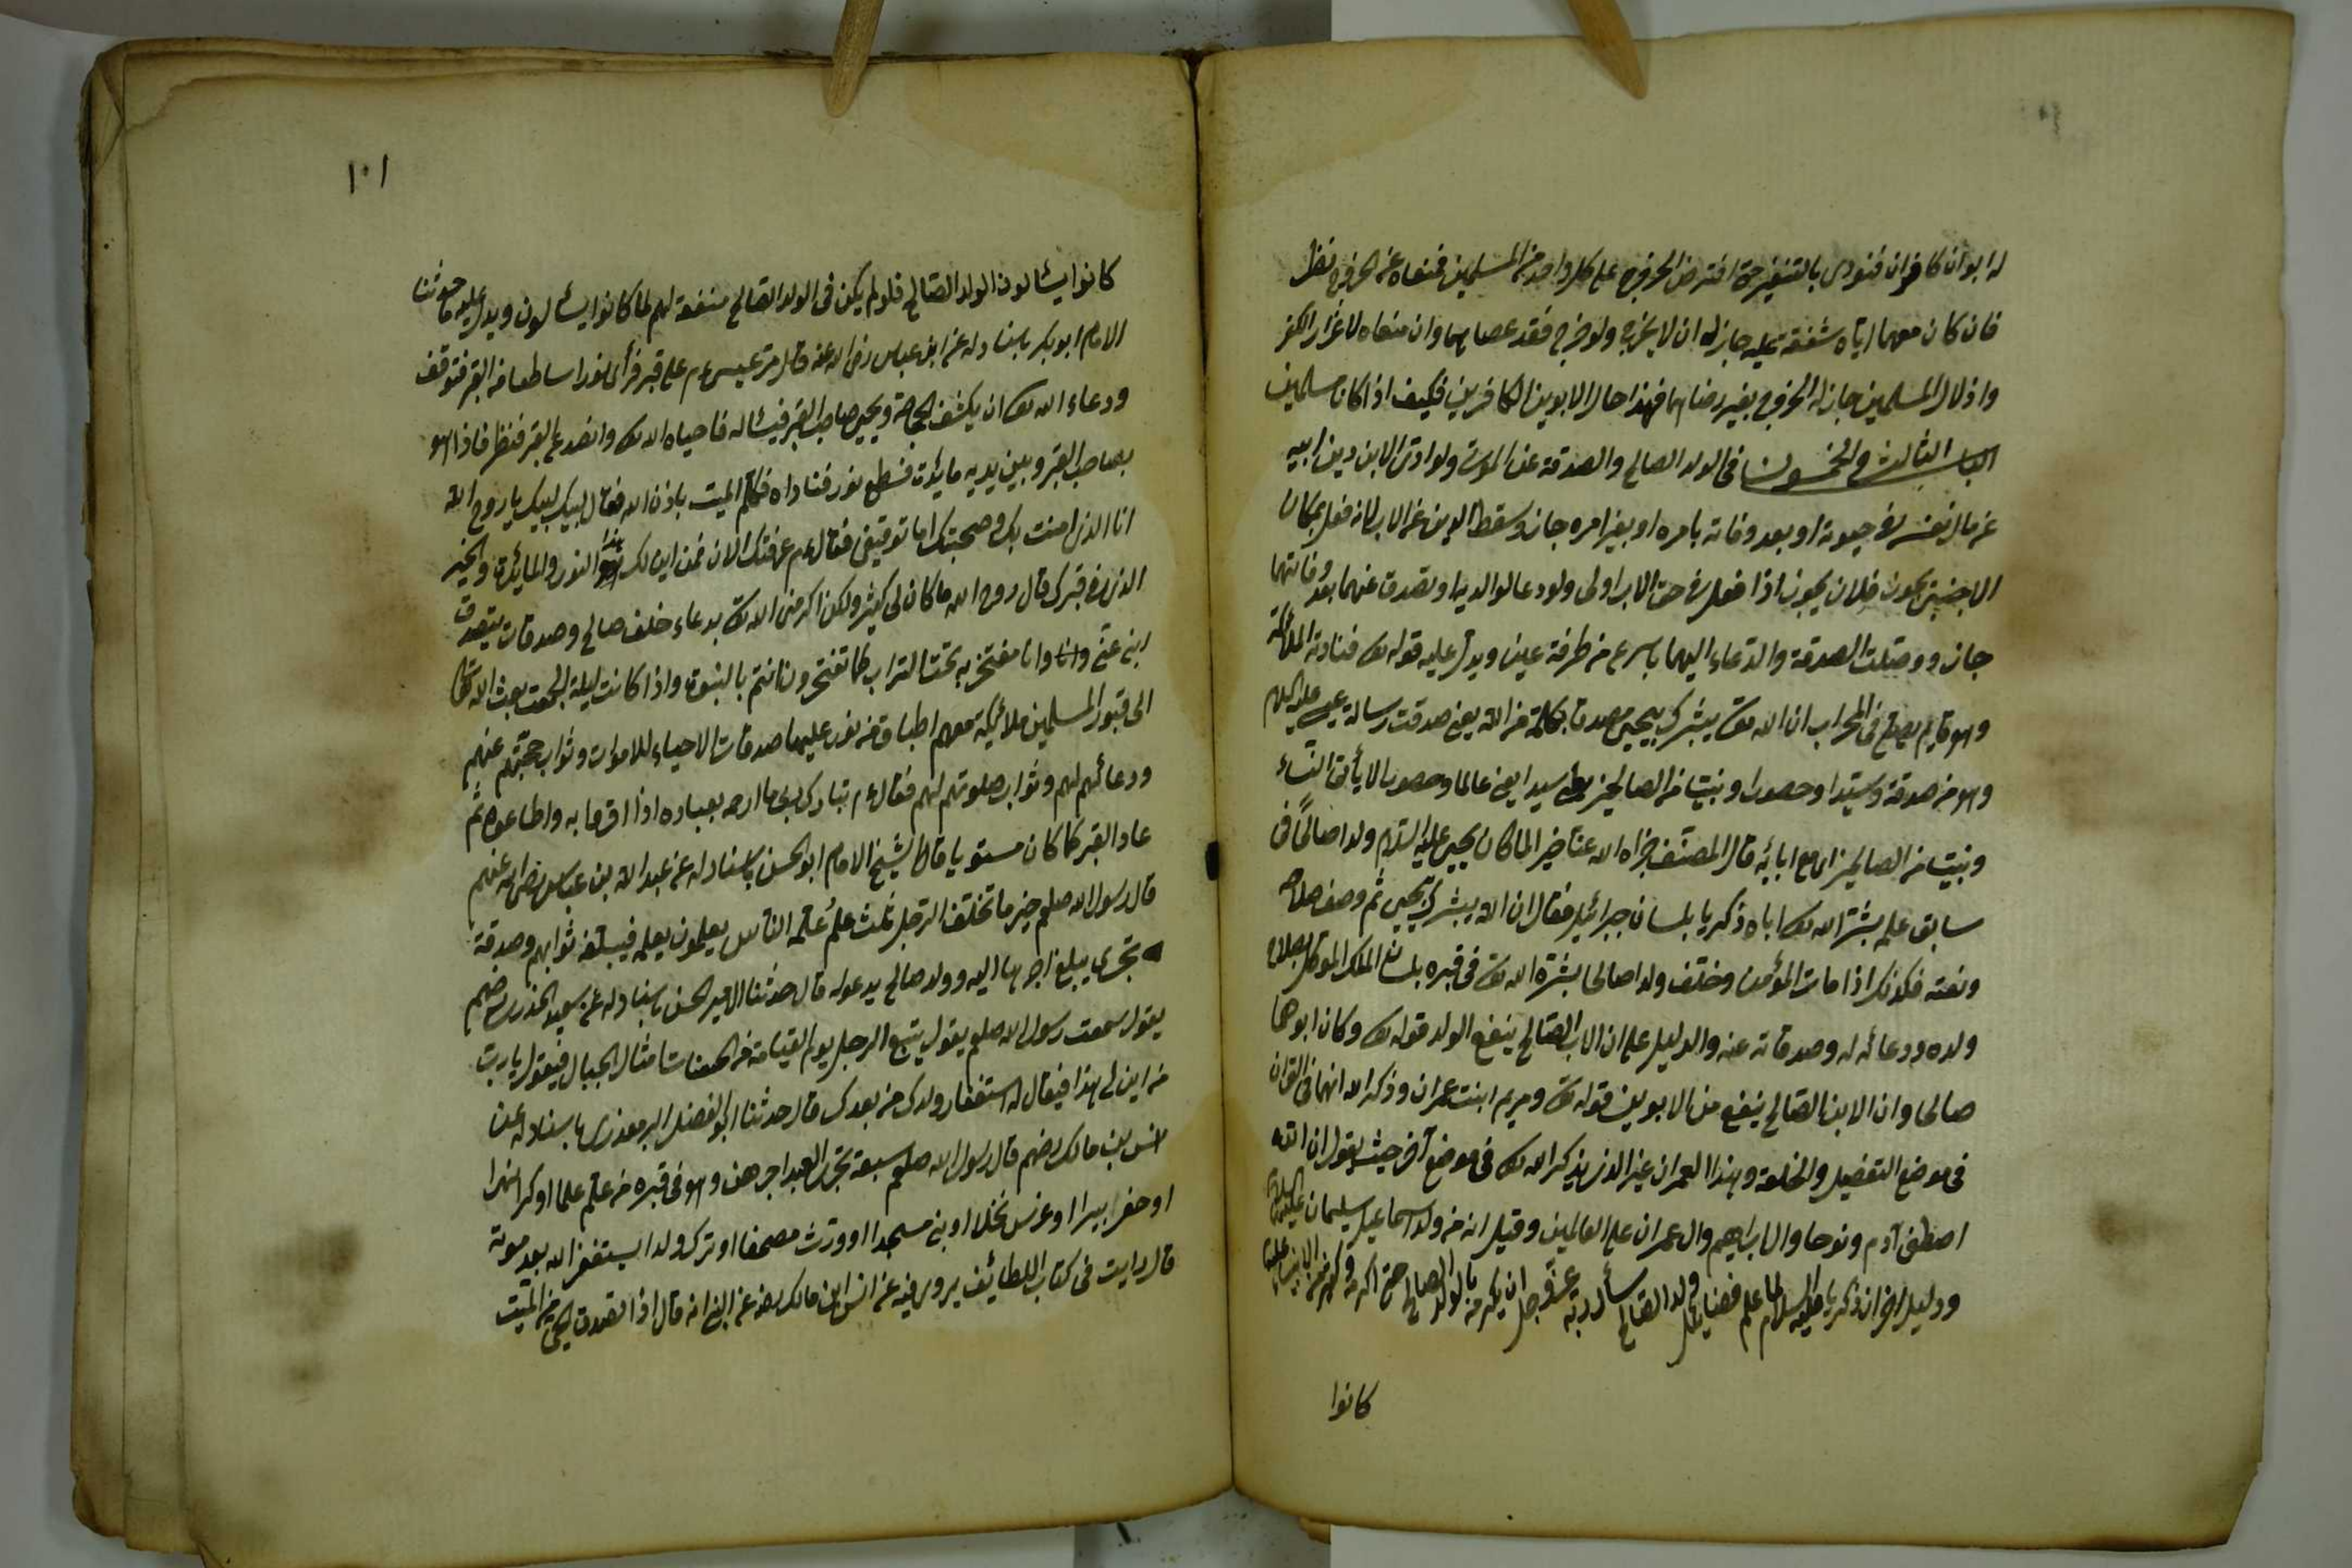 له ابوان كافران فنودى بالتنفير حتى افترض الخروج على كل واحد من المسلمين فمنعاه عن الخروج نظر
فان كان معهما اياه شفقة عليه جاز له ان لا يخرج ولو خرج فقد عصاهما وان منعاه لاعزاز الكفر
واذلال المسلمين جاز له الخروج بغير رضاهما فهذا حال الابوين الكافرين فكيف اذا كانا مسلمين
الباب الثالث والخمسون فى الولد الصالح والصدقة عن الموتى ولو ادى الابن دين ابيه
من مال نفسه فى حيوته او بعد وفاته بامره او بغير امره جاز وسقط الدين عن الاب لانه فعل بمكان
الاجنبى يجوز فلان يجوز اذا فعل فى حق الاب اولى ولو دعا لوالديه او تصدق عنهما بعد وفاتهما
جاز ووصلت الصدقة والدعاء اليهما باسرع من طرفة عين ويدل عليه قوله تعالى فنادته الملائكة
وهو قايم يصلى فى المحراب ان الله يبشرك بيحيى مصدقا بكلمة من الله يعنى صدقت رسالة عيسى عليه السلام
وهو من صدقه وسيدا وحصورا ونبيا من الصالحين سيدا يعنى عالما وحصورا لا يأتى النساء
ونبيا من الصالحين اى مع ابائه قال المصنف جزاه الله عنا خيرا لما كان يحيى عليه السلام ولدا صالحا فى
سابق علمه بشر الله تعالى اباه زكريا بلسان جبرائيل فقال ان الله يبشرك بيحيى ثم وصف صلاحه
ونعته فكذلك اذا مات المؤمن وخلف ولدا صالحا بشره الله تعالى فى قبره بلسان الملك الموكل بصلاح
ولده ودعائه له وصدقاته عنه والدليل على ان الاب الصالح ينفع الولد قوله تعالى وكان ابوهما
صالحا وان الابن الصالح ينفع من الابوين قوله تعالى ومريم ابنت عمران وذكر الله انهما فى القران
فى موضع التفضيل والخلعة وهذا العمران غير الذى يذكر الله تعالى فى موضع آخر حيث يقول ان الله
اصطفى آدم ونوحا وال ابراهيم وال عمران على العالمين وقيل انه من ولد اسماعيل سليمان عليهما السلام
ودليل اخر ان زكريا عليه السلام لما علم فضائل ولد الصالح سأل ربه عز وجل ان يكرمه بالولد الصالح حتى اكرمه وكم من الانبياء عليهم
كانوا
١٠١
كانوا يسئالون الولد الصالح فلو لم يكن فى الولد الصالح منفعة لهم لما كانوا يسألون ويدل عليه ما حدثنا
الامام ابو بكر باسناد له عن ابن عباس رضى الله عنه قال مر عيسى ءم على قبر فرأى نورا ساطعا من القبر فتوقف
ودعاء الله تعالى ان يكشف الحاجة ويحيى صاحب القبر فيسئاله فاحياه الله تعالى وانصدع القبر فنظر فاذا هو
بصاحب القبر وبين يديه مايدة فسطع نور فناداه فكلم الميت باذن الله فقال لبيك لبيك يا روح الله
انا الذى امنت بك وصحبتك اما توقيفى فقال ءم عرفتك الان فمن اين لك هذا النور والمايدة والخير
الذى فى قبرك قال روح الله ما كان لى كثير ولكن اكرمنى الله تعالى بدعاء خلف صالح وصدقات يتصدق
ابنى عنى وانا وانا مفتخر به تحت التراب كما تفتخرون انتم بالنبوة واذا كانت ليلة الجمعة بعث الله تعالى
الى قبور المسلمين ملائكة معهم اطباق من نور عليها صدقات الاحياء للاموات وثواب حجتهم عنهم
ودعائهم لهم وثواب صلوتهم لهم فقال ءم تبارك ربى ما ارحمه بعباده اذا اقرما به واطاعوه ثم
عاد القبر كما كان مستويا قال الشيخ الامام ابو الحسن باسناد له عن عبد الله بن عباس رضى الله عنهم
قال رسول الله صلعم خير ما تخلف الرجل ثلث علم علمه الناس يعلمون بعلمه فيبلغه ثوابهم وصدقة
تجرى يبلغ اجرها اليه وولد صالح يدعو له قال حدثنا الامير الحسن باسناد له عن سعيد الخدرى رضهم
يقول سمعت رسول الله صلعم يقول يتبع الرجل يوم القيامة من الحسنات امثال الجبال فيقول يا رب
من اين لى هذا فيقال له استغفار ولدك من بعدك قال حدثنا ابو الفضل البرمعذرى باسناد له عن
انس بن مالك رضهم قال رسول الله صلعم سبعة تجرى للعبد اجرهن وهو فى قبره من علم علما او كرا نهرا
او حفر بيرا او غرس نخلا او بنى مسجدا او ورث مصحفا او ترك ولدا يستغفر الله بعد موته
قال رايت فى كتاب اللطائف يروى فيه عن انس ابن مالك رضه عن النبى انه قال اذا تصدق الحى عن الميت